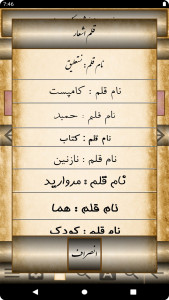 7:46
قلم اشعار
نام قلم : نستعلیق
نام قلم : کامپست
نام قلم : حمید
نام قلم : کتاب
نام قلم : نازنین
نام قلم : مروارید
نام قلم : هما
نام قلم : کودک
انصراف